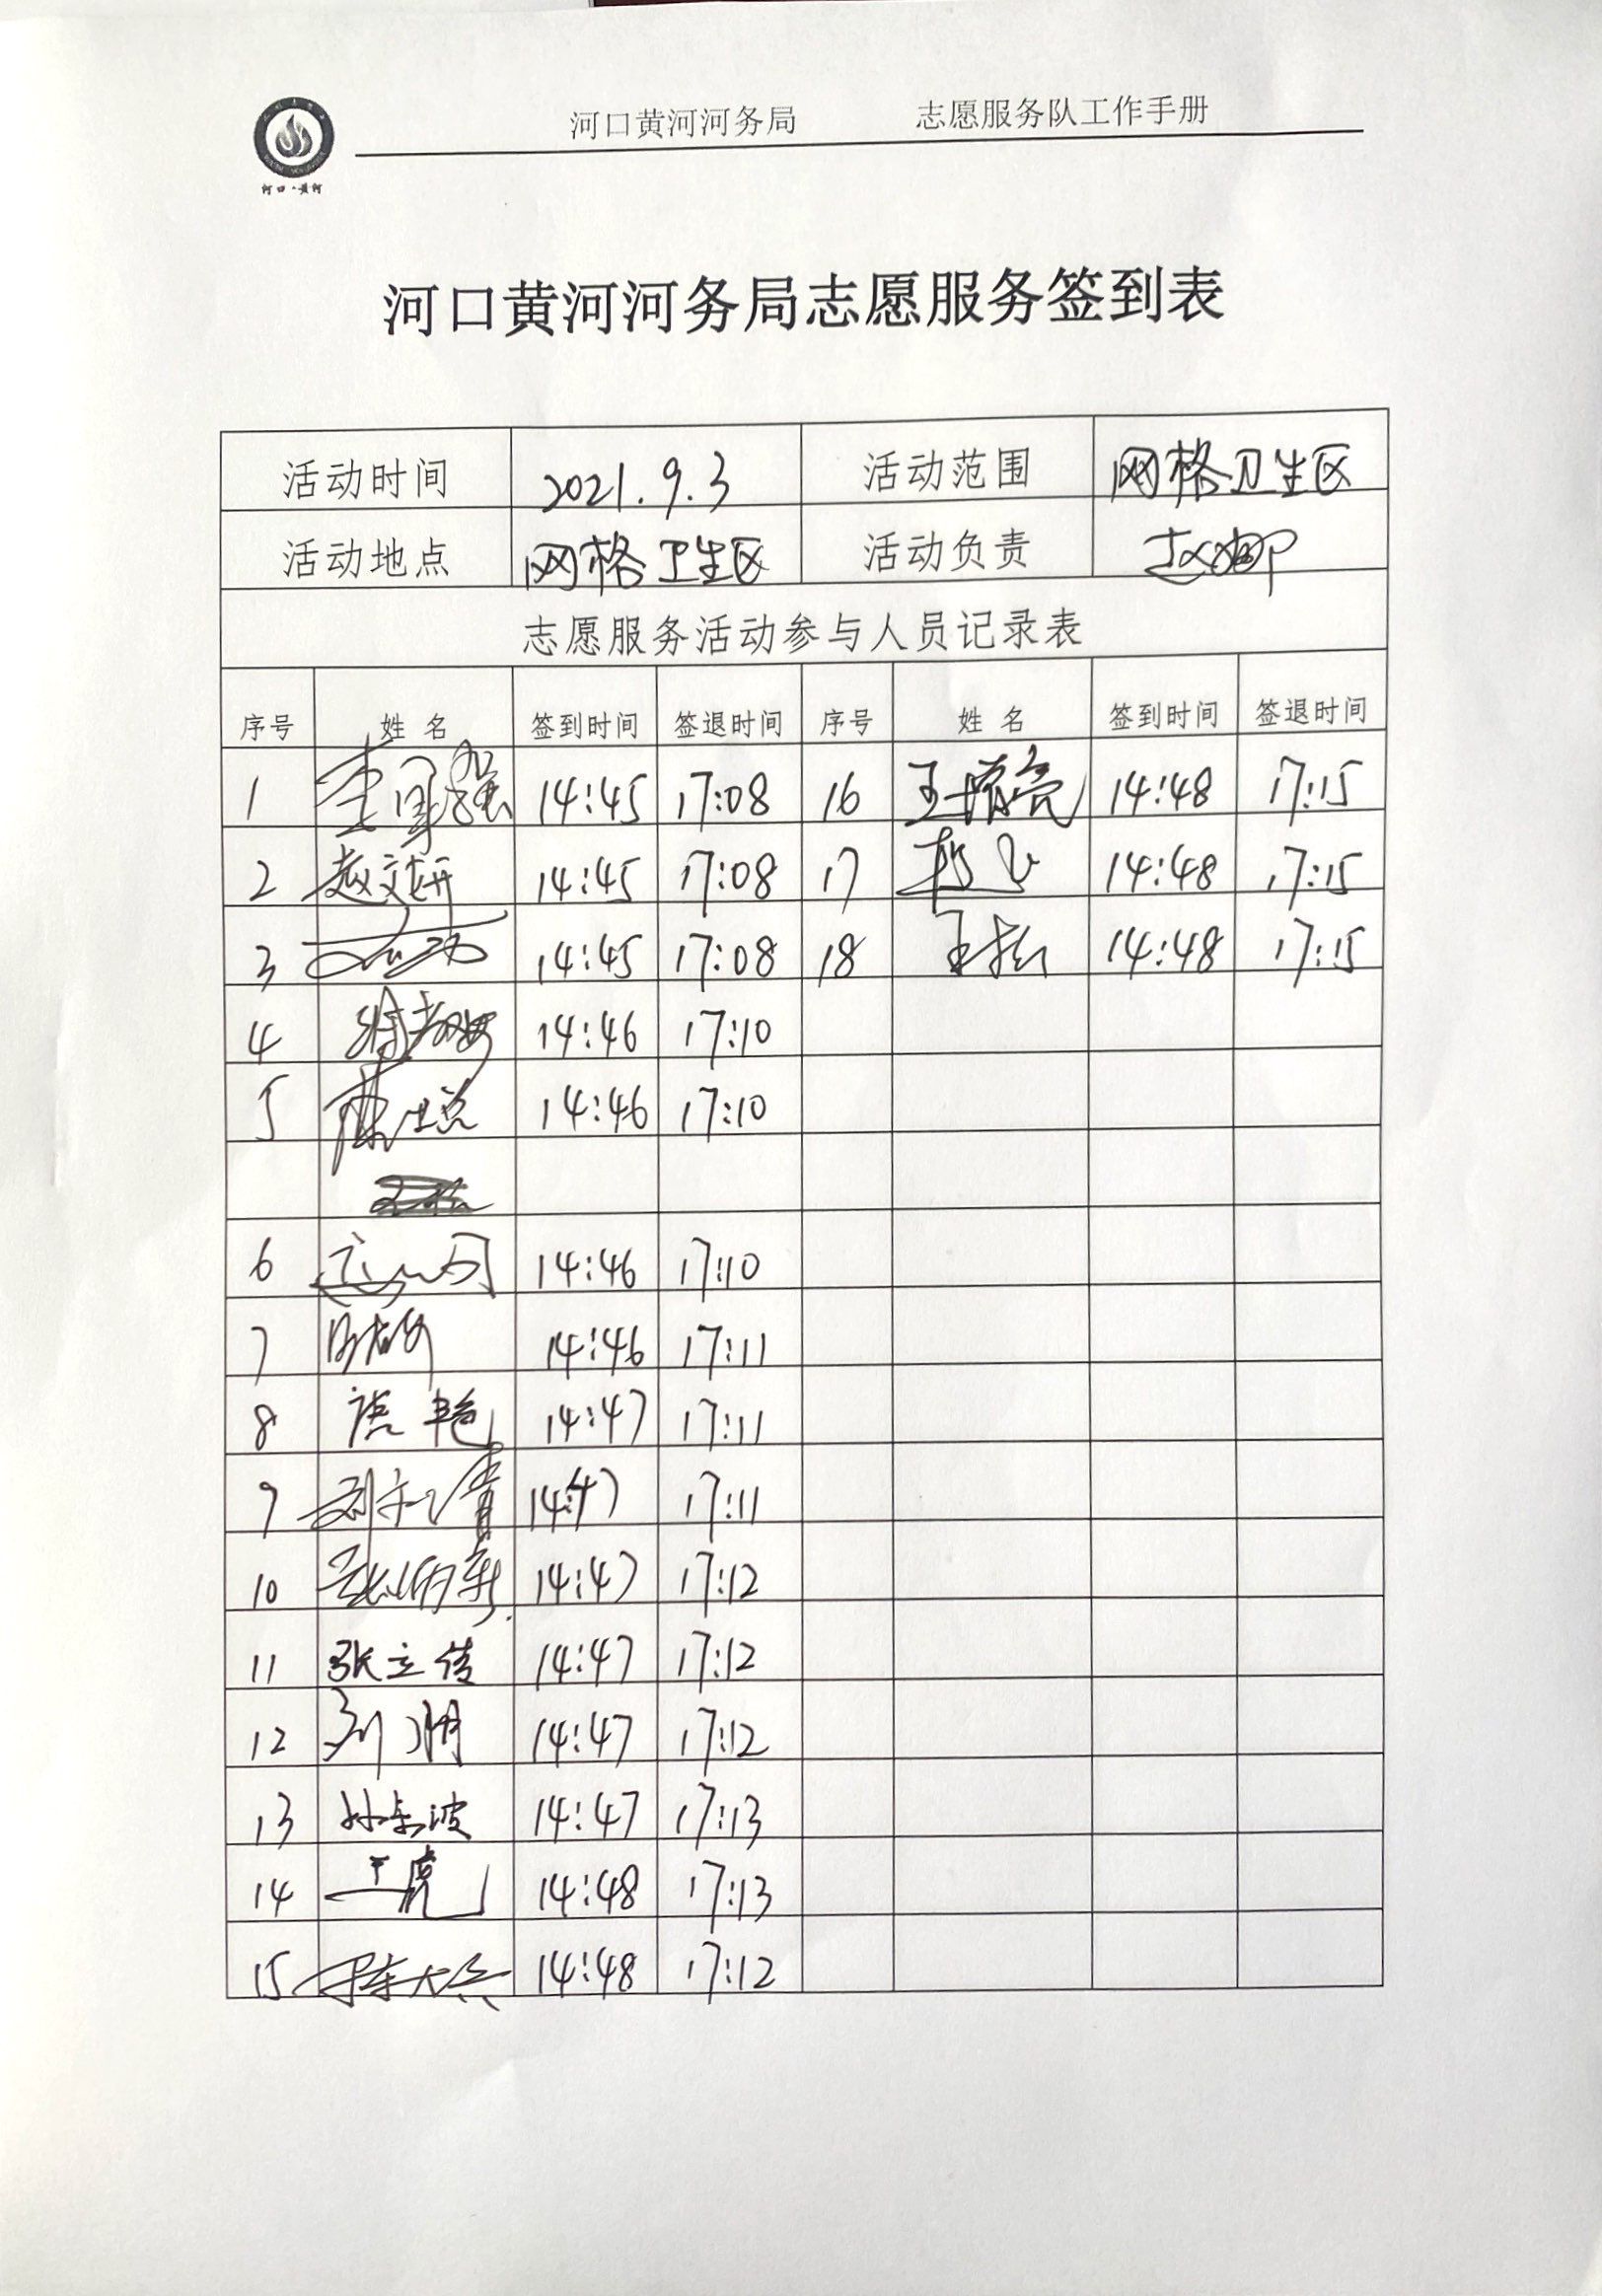 河口·黄河
河口黄河河务局 志愿服务队工作手册
河口黄河河务局志愿服务签到表
活动时间 2021.9.3 活动范围 网格卫生区
活动地点 网格卫生区 活动负责 赵娜
志愿服务活动参与人员记录表
序号 姓 名 签到时间 签退时间 序号 姓 名 签到时间 签退时间
1 李军强 14:45 17:08 16 王增亮 14:48 17:15
2 赵文妍 14:45 17:08 17 14:48 17:15
3 14:45 17:08 18 王松 14:48 17:15
4 14:46 17:10
5 14:46 17:10
6 14:46 17:10
7 14:46 17:11
8 14:47 17:11
9 14:47 17:11
10 14:47 17:12
11 张立传 14:47 17:12
12 刘朋 14:47 17:12
13 14:47 17:13
14 王虎 14:48 17:13
15 14:48 17:12